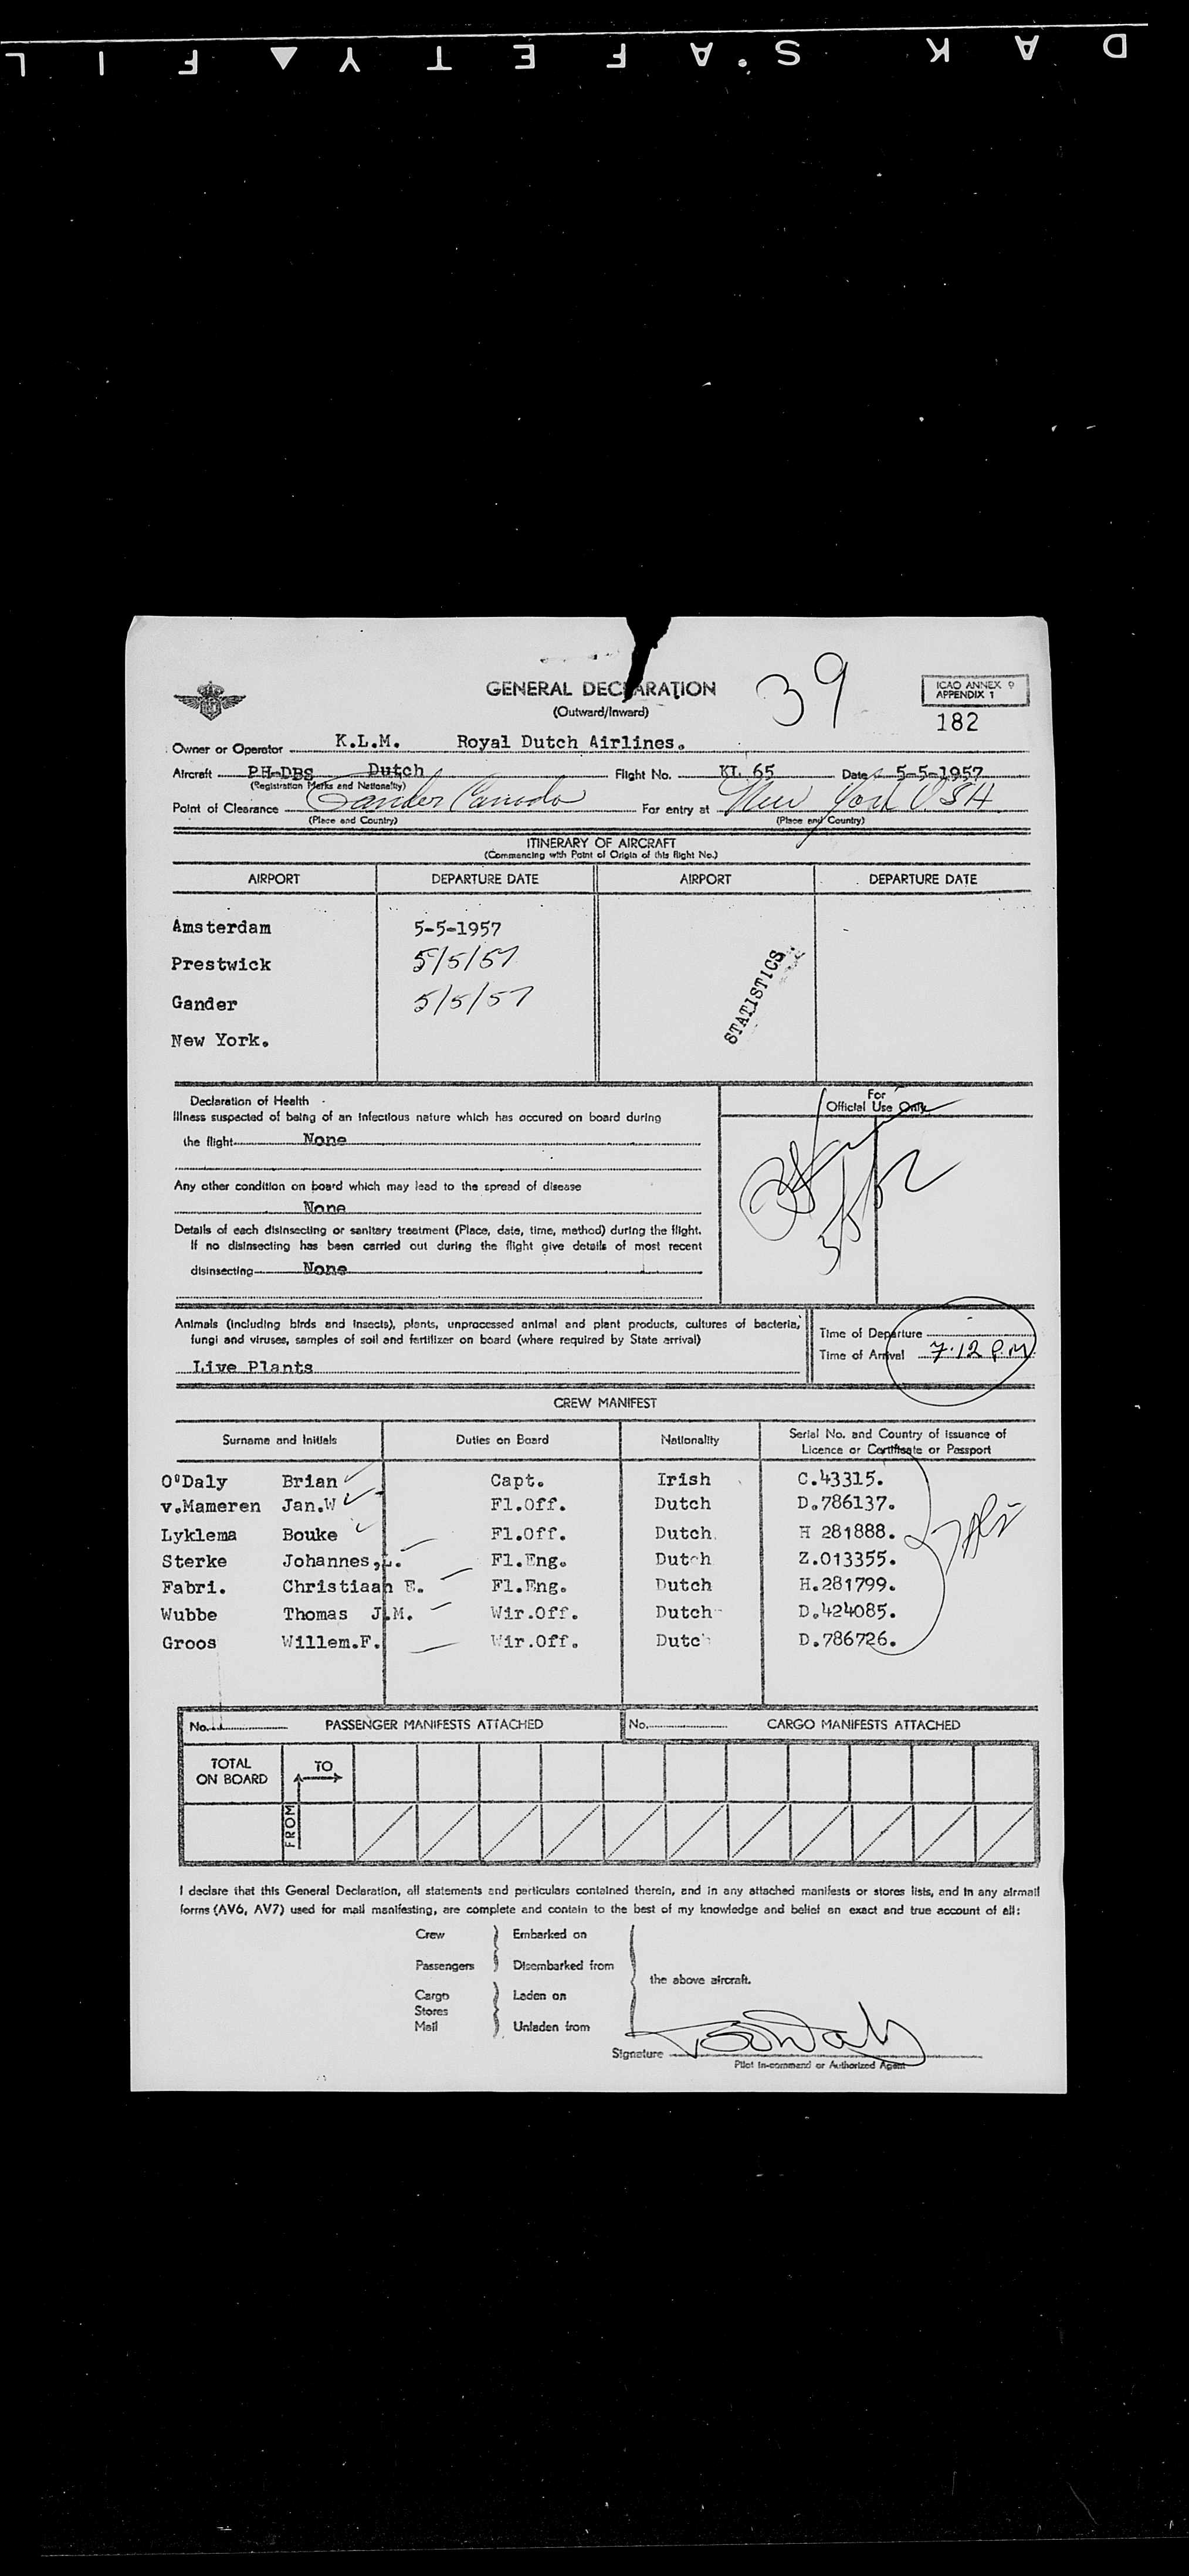 KODAK SAFETY FIL
GENERAL DECLARATION
(Outward/Inward)
39
ICAO ANNEX 9
APPENDIX 1
182
Owner or Operator K.L.M. Royal Dutch Airlines.
Aircraft PH-DBS Dutch Flight No. KL 65 Date 5-5-1957
(Registration Marks and Nationality)
Point of Clearance Gander Canada For entry at New York USA
(Place and Country) (Place and Country)
ITINERARY OF AIRCRAFT
(Commencing with Point of Origin of this flight No.)
AIRPORT DEPARTURE DATE AIRPORT DEPARTURE DATE
Amsterdam 5-5-1957
Prestwick 5/5/57
Gander 5/5/57
New York.
STATISTICS
Declaration of Health
For
Official Use Only
Illness suspected of being of an infectious nature which has occured on board during
the flight None
Any other condition on board which may lead to the spread of disease
None
Details of each disinsecting or sanitary treatment (Place, date, time, method) during the flight.
If no disinsecting has been carried out during the flight give details of most recent
disinsecting None
Animals (including birds and insects), plants, unprocessed animal and plant products, cultures of bacteria,
fungi and viruses, samples of soil and fertilizer on board (where required by State arrival)
Live Plants
Time of Departure
Time of Arrival 7.12 P.M.
CREW MANIFEST
Surname and Initials Duties on Board Nationality Serial No. and Country of issuance of
Licence or Certificate or Passport
O'Daly Brian Capt. Irish C.43315.
v.Mameren Jan.W Fl.Off. Dutch D.786137.
Lyklema Bouke Fl.Off. Dutch H 281888.
Sterke Johannes,L. Fl.Eng. Dutch Z.013355.
Fabri. Christiaan E. Fl.Eng. Dutch H.281799.
Wubbe Thomas J.M. Wir.Off. Dutch D.424085.
Groos Willem.F. Wir.Off. Dutch D.786726.
No. PASSENGER MANIFESTS ATTACHED No. CARGO MANIFESTS ATTACHED
TOTAL
ON BOARD
TO
FROM
I declare that this General Declaration, all statements and particulars contained therein, and in any attached manifests or stores lists, and in any airmail
forms (AV6, AV7) used for mail manifesting, are complete and contain to the best of my knowledge and belief an exact and true account of all:
Crew Embarked on
Passengers Disembarked from
the above aircraft.
Cargo Laden on
Stores
Mail Unladen from
Signature
Pilot in-command or Authorized Agent